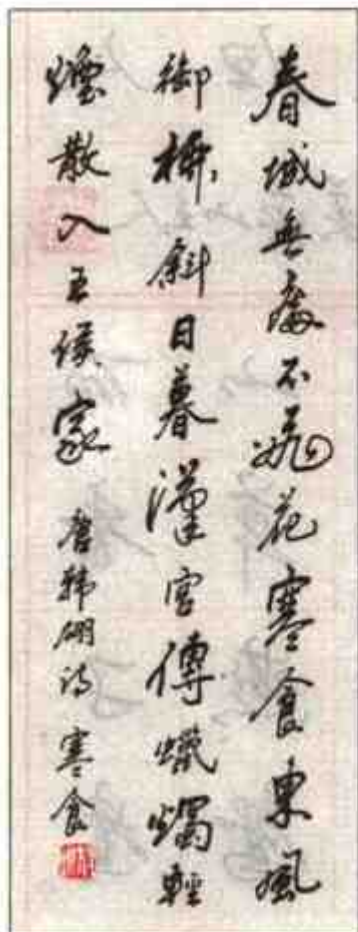 春城無處不飛花寒食東風
御柳斜日暮漢宮傳蠟燭輕
煙散入五侯家 唐韓翃詩 寒食